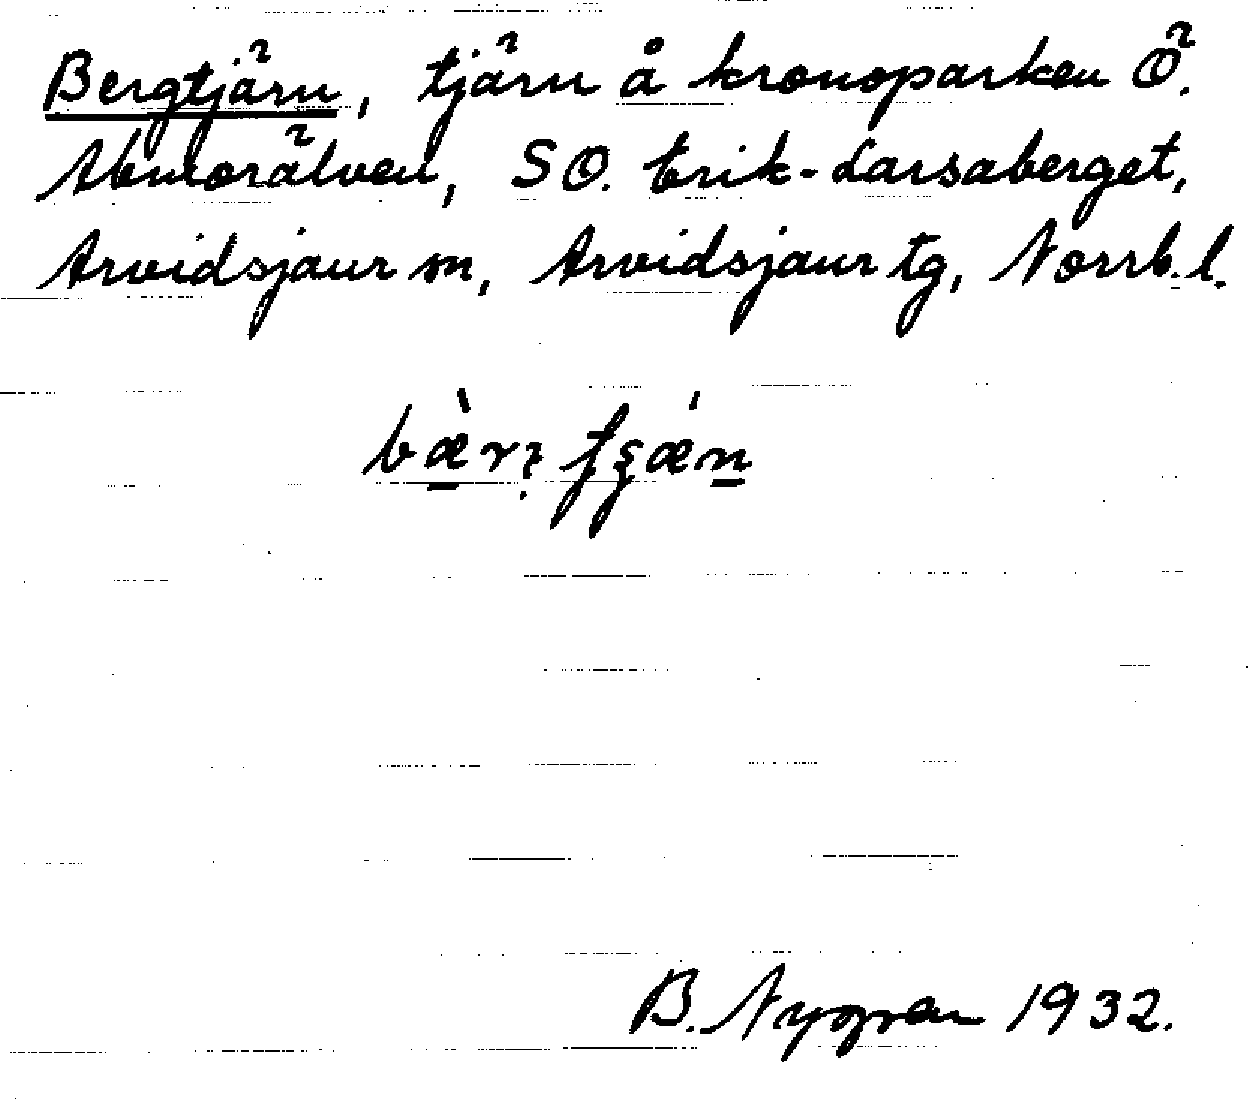 Bergtjärn, tjärn å kronoparken Ö.
Abmorälven, SO. Erik-Larsaberget,
Arvidsjaur sn, Arvidsjaur tg, Norrb. l.
B. Nygren 1932.